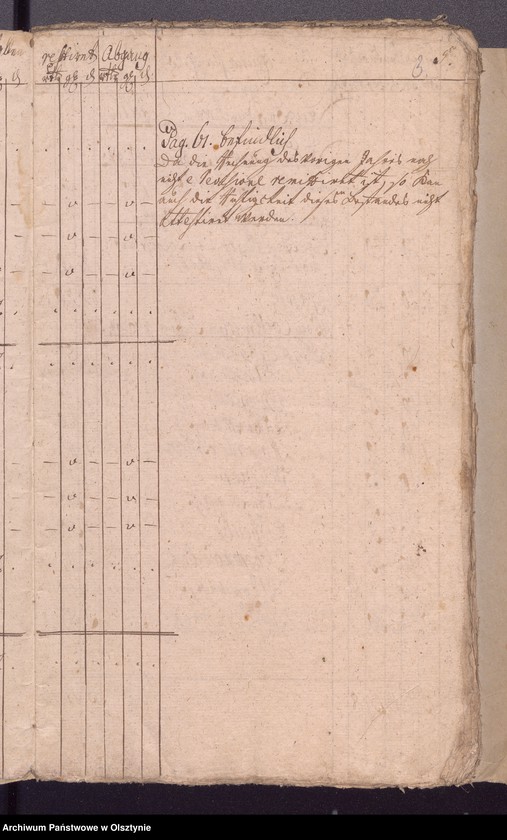 restiret Abgang
rthl gl d rthl gl d
3.
Pag. 61. befindlich.
Da die Rechnung des vorigen Jahres noch
nicht e Revisione remittiret ist, so kan
auf die Richtigkeit dieses Bestandes nicht
attestiret werden.
Archiwum Państwowe w Olsztynie